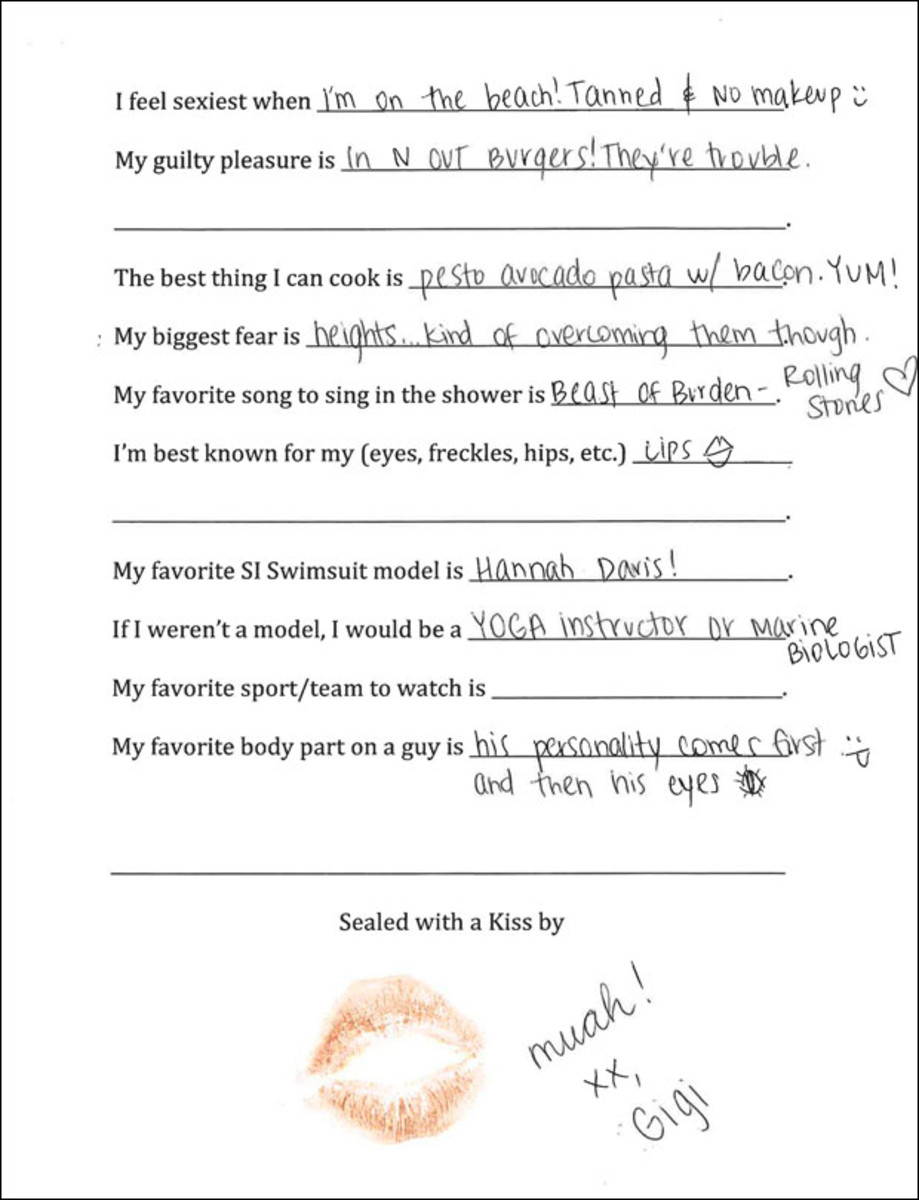 I feel sexiest when I'm on the beach! Tanned & No makeup
My guilty pleasure is In N OUT Burgers! They're trouble.
The best thing I can cook is pesto avocado pasta w/ bacon. YUM!
My biggest fear is heights... kind of overcoming them though.
My favorite song to sing in the shower is Beast of Burden - Rolling
Stones
I'm best known for my (eyes, freckles, hips, etc.) Lips
My favorite SI Swimsuit model is Hannah Davis!
If I weren't a model, I would be a YOGA instructor or Marine
BIOLOGIST
My favorite sport/team to watch is
My favorite body part on a guy is his personality comes first
and then his eyes
Sealed with a Kiss by
muah!
xx,
Gigi